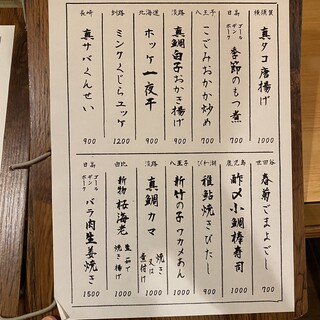 横須賀
真ダコ唐揚げ
1000
日高
ゴールデンポーク
季節のもつ煮
900
八王子
こごみおかか炒め
700
淡路
真鯛白子おかき揚げ
900
北海道
ホッケ一夜干
900
釧路
ミンクくじらユッケ
1200
長崎
真サバくんせい
900
世田谷
春菊ごまよごし
700
鹿児島
酢〆小鯛棒寿司
1000
びわ湖
稚鮎焼きびたし
900
八王子
新竹の子ワカメあん
1000
淡路
真鯛カマ
焼き又は煮付け
1000
由比
新物桜海老
釜茹で
焼き揚げ
1000
日高
バラ肉生姜焼き
1500